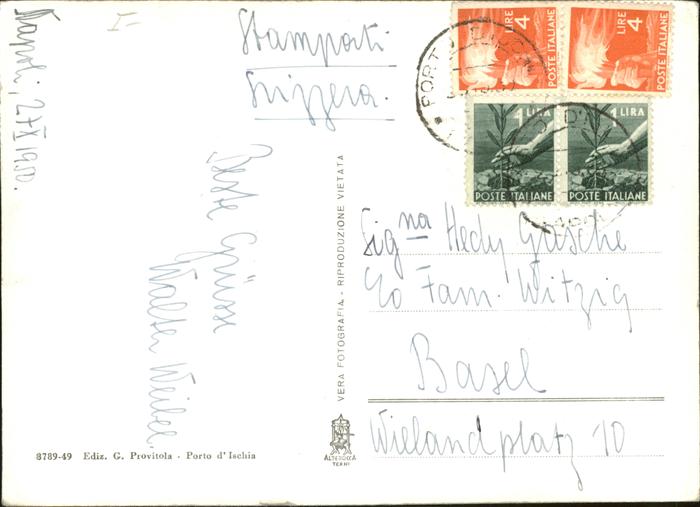 Napoli, 27 X 1950.
Stampati
Svizzera.
Beste Grüsse
Walter
4 LIRE
POSTE ITALIANE
4 LIRE
POSTE ITALIANE
1 LIRA
POSTE ITALIANE
1 LIRA
POSTE ITALIANE
PORTO D'ISCHIA
Signa Hedy
c/o Fam. Witzig
Basel
Wielandplatz 10
VERA FOTOGRAFIA - RIPRODUZIONE VIETATA
ALTEROCCA
TERNI
8789-49 Ediz. G. Provitola - Porto d'Ischia